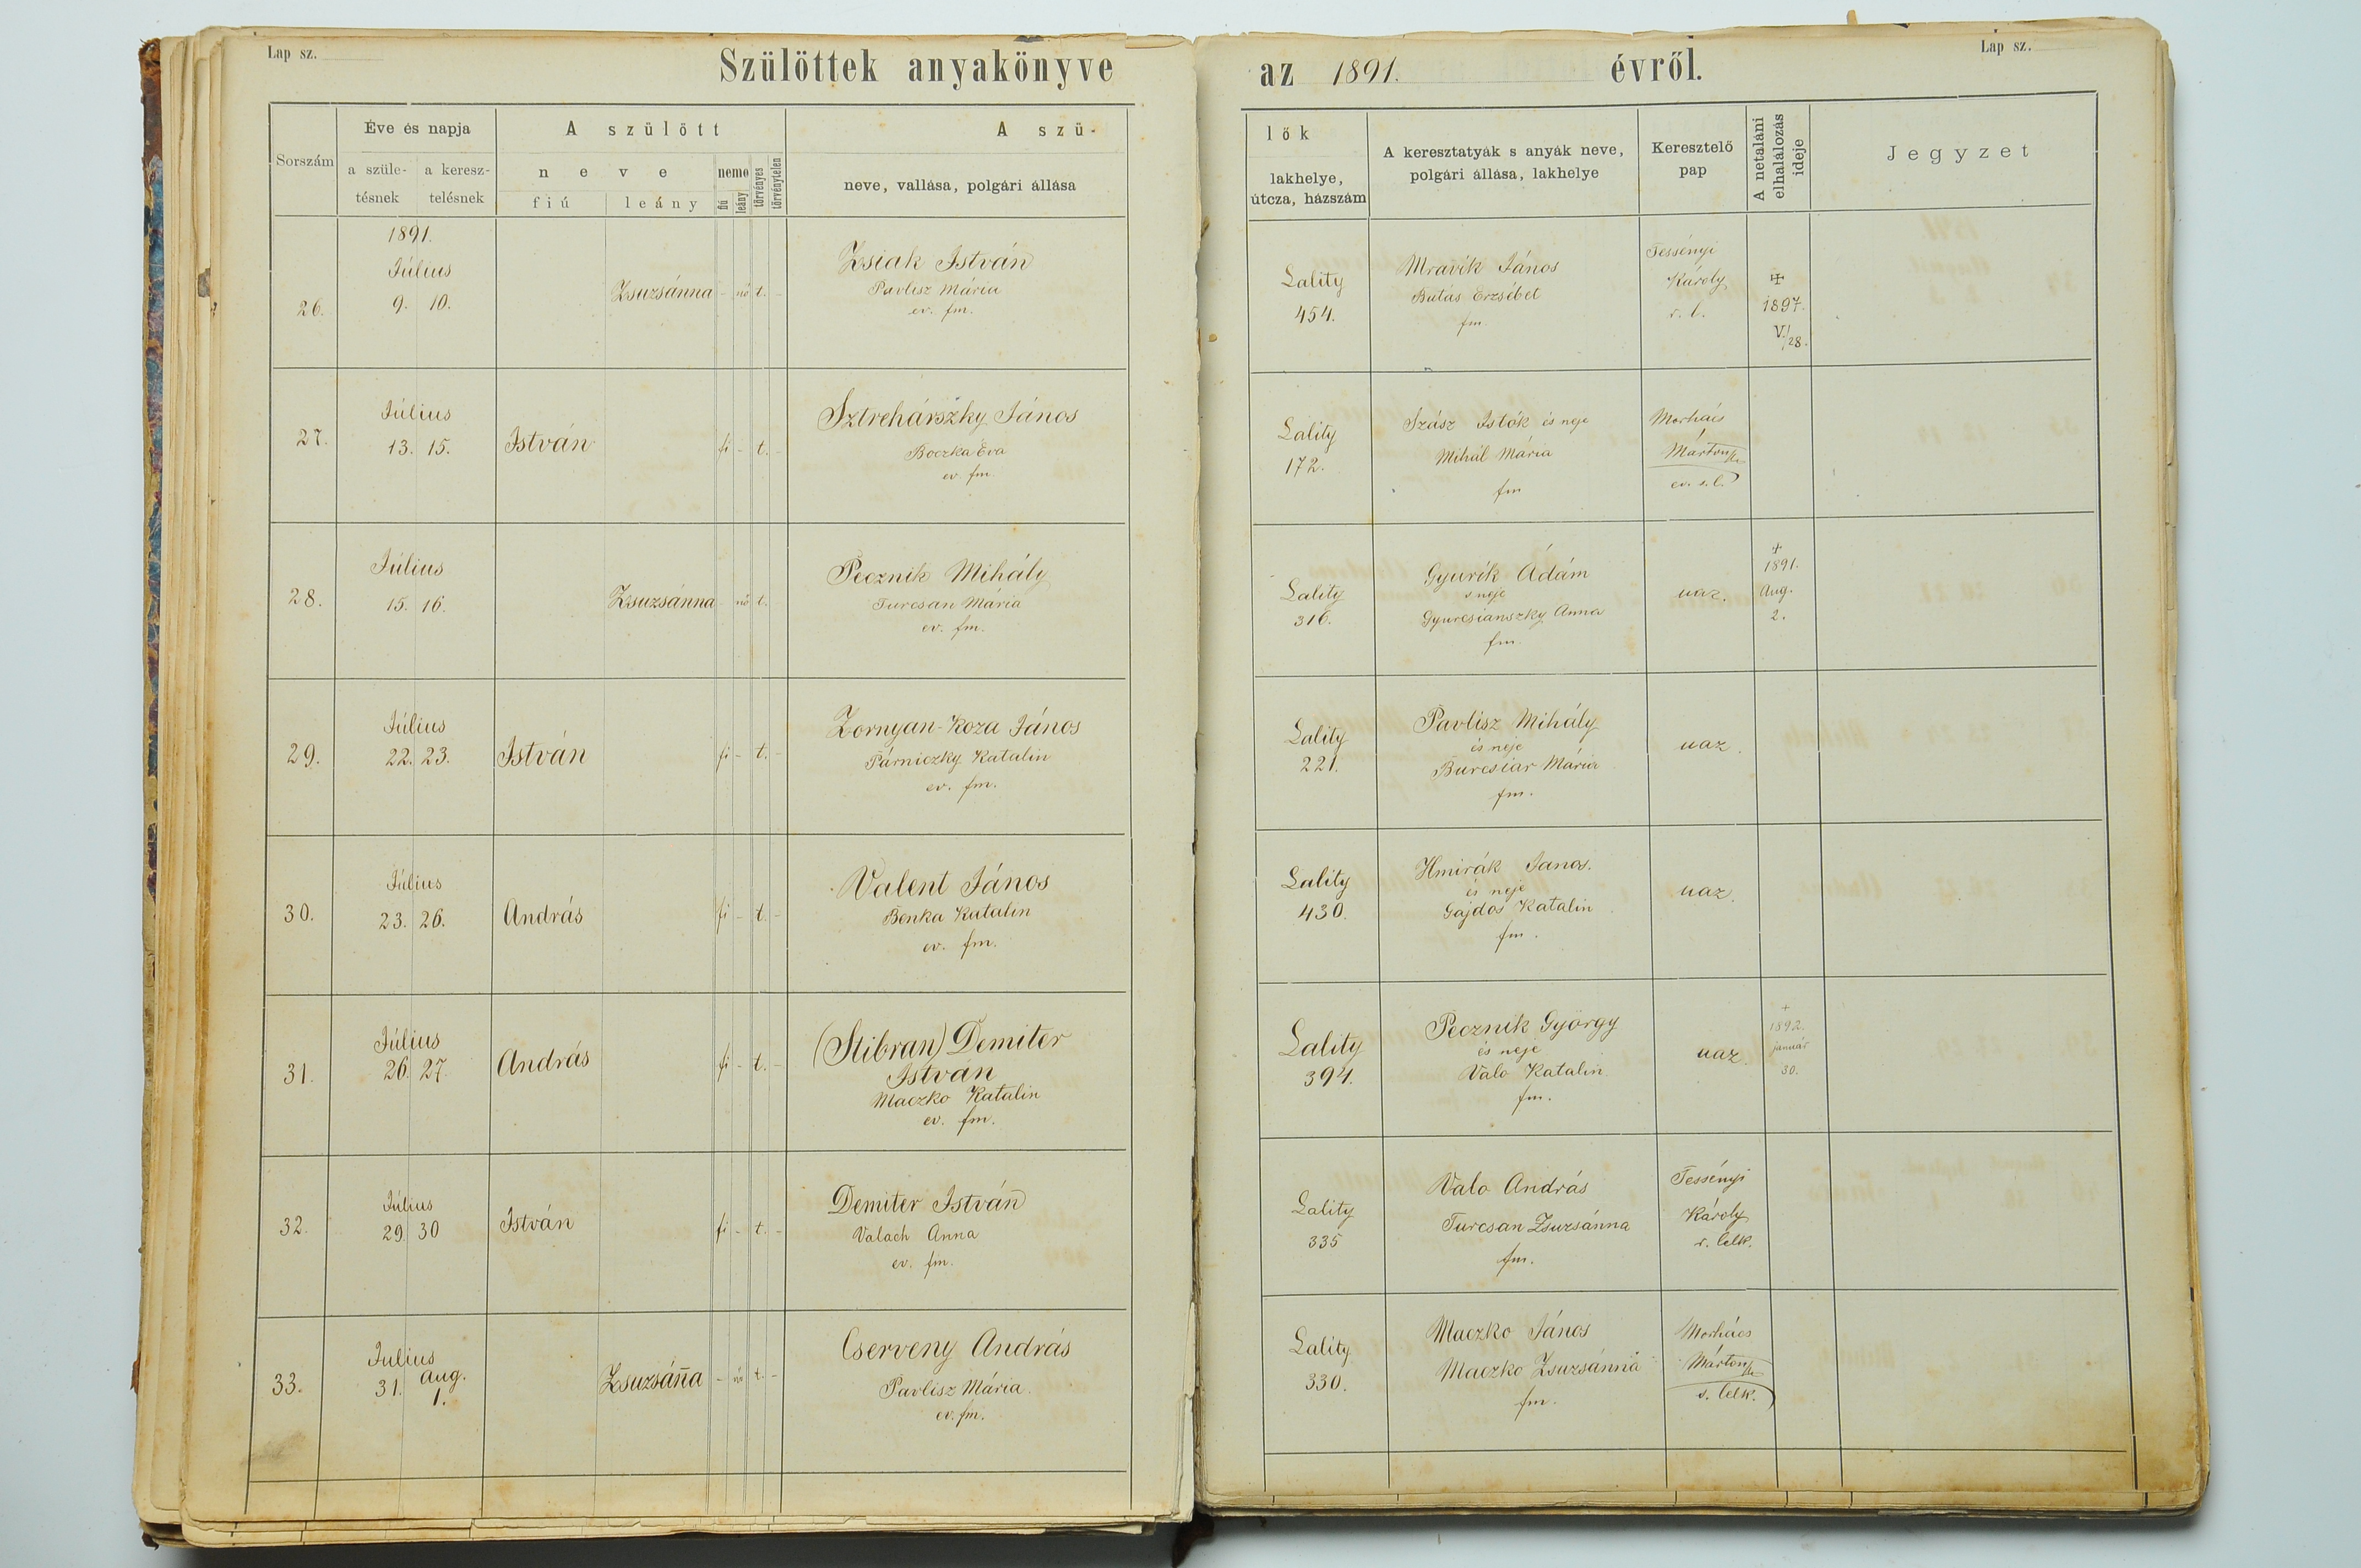 Lap sz.
Szülöttek anyakönyve
Sorszám
Éve és napja
a szüle-
tésnek
a keresz-
telésnek
A szülött
neve
fiú
leány
neme
fiú
leány
törvényes
törvénytelen
A szü-
neve, vallása, polgári állása
1891.
26.
Július
9. 10.
Zsuzsánna
- nő t. -
Zsiak István
Pavlisz Mária
ev. fm.
27.
Július
13. 15.
István
fi - t. -
Sztrehárszky János
Boczka Éva
ev. fm.
28.
Július
15. 16.
Zsuzsánna
nő t.
Pecznik Mihály
Turcsan Mária
ev. fm.
29.
Július
22. 23.
István
fi - t. -
Zornyan-Koza János
Párniczky Katalin
ev. fm.
30.
Július
23. 26.
András
fi - t. -
Valent János
Benka Katalin
ev. fm.
31.
Július
26. 27.
András
fi - t. -
(Stibran) Demiter
István
Maczko Katalin
ev. fm.
32.
Július
29. 30
István
fi - t. -
Demiter István
Valach Anna
ev. fm.
33.
Julius
31. Aug.
1.
Zsuzsán̄a
- nő t. -
Cserveny András
Pavlisz Mária
ev. fm.
Lap sz.
az 1891. évről.
lők
lakhelye,
útcza, házszám
A keresztatyák s anyák neve,
polgári állása, lakhelye
Keresztelő
pap
A netaláni
elhalálozás
ideje
Jegyzet
Lality
454.
Mravík János
Butás Erzsébet
fm.
Tessényi
Károly
r. l.
1897.
V./28.
Lality
172.
Szász Istók és neje
Mihál Mária
fm
Morhács
Márton
ev. s. l.
Lality
316.
Gyurík Ádám
s neje
Gyurcsianszky Anna
fm.
uaz.
+
1891.
Aug.
2.
Lality
221.
Pavlisz Mihály
és neje
Burcsiar Mária
fm.
uaz.
Lality
430.
Hmirák Janos.
és neje
Gajdos Katalin
fm.
uaz.
Lality
394.
Pecznik György
és neje
Valo Katalin
fm.
uaz.
+
1892.
január
30.
Lality
335
Valo András
Turcsan Zsuzsánna
fm.
Tessényi
Károly
r. lelk.
Lality
330.
Maczko János
Maczko Zsuzsánna
fm.
Morhács
Márton
s. lelk.